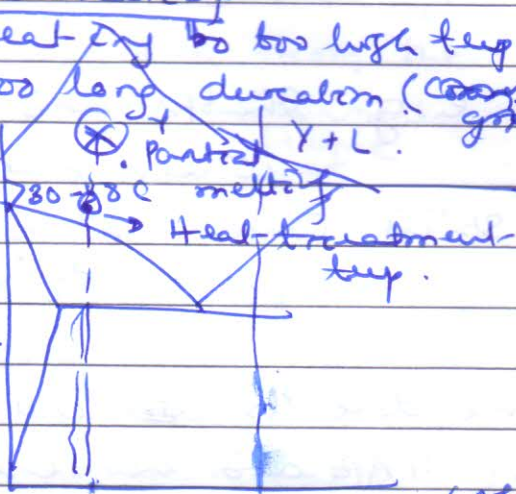 eating to too high temp
oo long duration (
γ γ + L.
Partial
melting
→ Heat-treatment
temp.